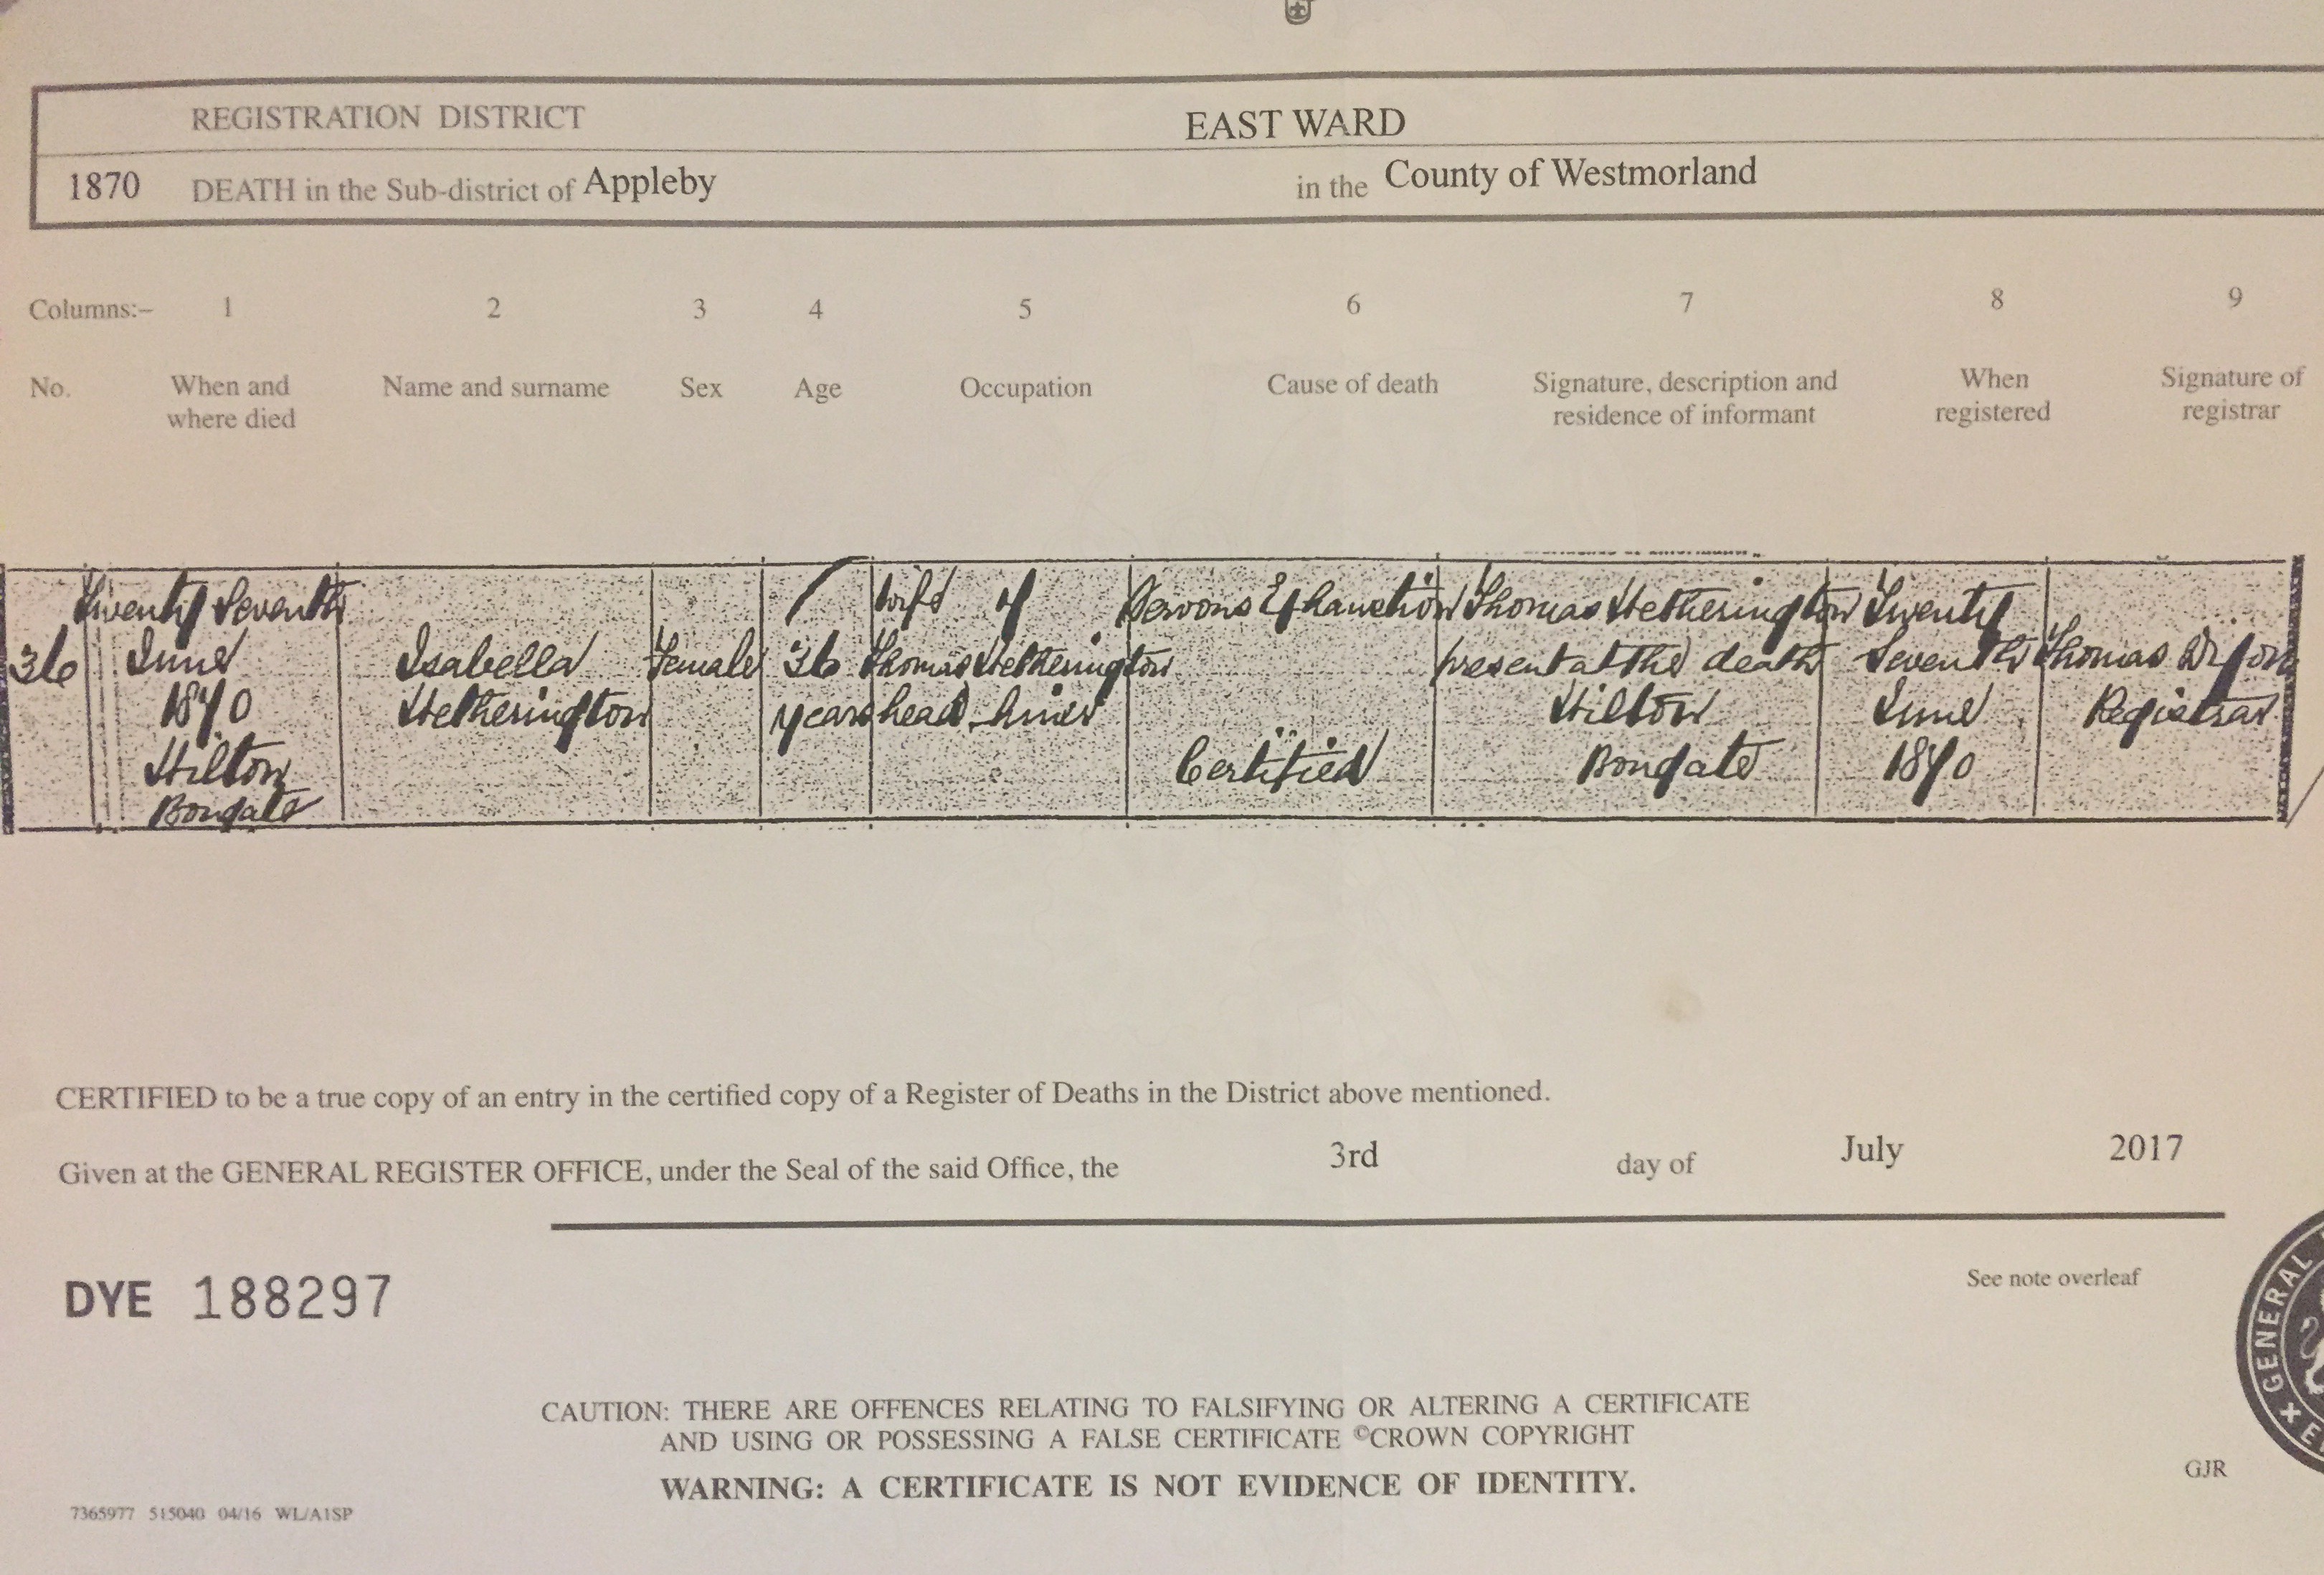 REGISTRATION DISTRICT EAST WARD
1870 DEATH in the Sub-district of Appleby in the County of Westmorland
Columns:– 1 2 3 4 5 6 7 8 9
No. When and where died Name and surname Sex Age Occupation Cause of death Signature, description and residence of informant When registered Signature of registrar
36
Twenty Seventh
June
1870
Hilton
Bongate
Isabella
Hetherington
Female
36
years
Wife of
Thomas Hetherington
head miner
Exhaustion
Certified
Thomas Hetherington
present at the death
Hilton
Bongate
Twenty
Seventh
June
1870
Thomas
Registrar
CERTIFIED to be a true copy of an entry in the certified copy of a Register of Deaths in the District above mentioned.
Given at the GENERAL REGISTER OFFICE, under the Seal of the said Office, the 3rd day of July 2017
DYE 188297
See note overleaf
GENERAL
CAUTION: THERE ARE OFFENCES RELATING TO FALSIFYING OR ALTERING A CERTIFICATE
AND USING OR POSSESSING A FALSE CERTIFICATE ©CROWN COPYRIGHT
WARNING: A CERTIFICATE IS NOT EVIDENCE OF IDENTITY.
GJR
7365977 515040 04/16 WL/A1SP